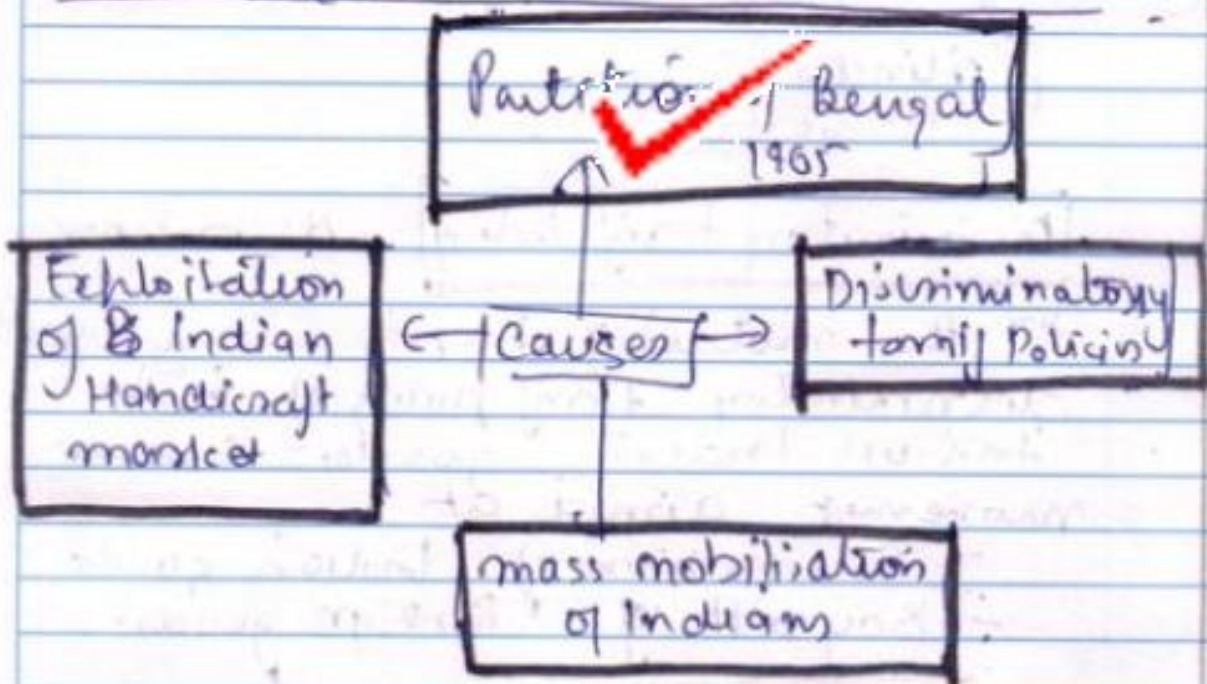 Partition of Bengal
1905
Exploitation
of Indian
Handicraft
market
Causes
Discriminatory
tariff Policies
mass mobilisation
of Indians